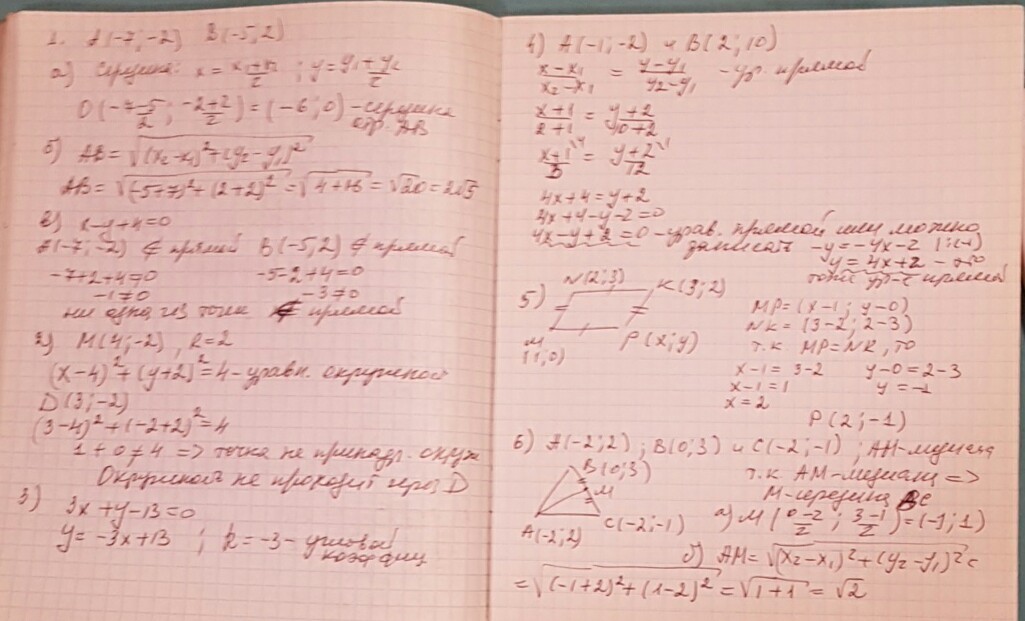 1. A(-7;-2) B(-5,2)
а) Середина: x = x₁+x₂/2 ; y = y₁+y₂/2
O(-7-5/2 ; -2+2/2) = (-6; 0) - середина
отр. AB
б) AB = √(x₂-x₁)²+(y₂-y₁)²
AB = √(-5+7)²+(2+2)² = √4+16 = √20 = 2√5
в) x-y+4=0
A(-7;-2) ∉ прямой B(-5,2) ∉ прямой
-7+2+4≠0 -5-2+4=0
-1≠0 -3≠0
ни одна из точек ∉ прямой
2) M(4;-2), R=2
(x-4)²+(y+2)²=4 - уравн. окружности
D(3;-2)
(3-4)²+(-2+2)²=4
1+0≠4 => точка не принадл. окруж
Окружность не проходит через D
3) 3x+y-13=0
y=-3x+13 ; k=-3 - угловой
коэффиц
4) A(-1;-2) и B(2;10)
x-x₁/x₂-x₁ = y-y₁/y₂-y₁ - ур. прямой
x+1/2+1 = y+2/10+2
x+1/3 = y+2/12
4x+4=y+2
4x+4-y-2=0
4x-y+2=0 - урав. прямой или можно
записать -y=-4x-2 |:(-1)
y=4x+2 - это
тоже ур-е прямой
5) N(2;3) K(3;2)
M (1;0) P(x;y)
MP=(x-1; y-0)
NK=(3-2; 2-3)
т.к MP=NK, то
x-1=3-2 y-0=2-3
x-1=1 y=-1
x=2
P(2;-1)
6) A(-2;2); B(0;3) и C(-2;-1); AM-медиана
B(0;3)
M
A(-2;2) C(-2;-1)
т.к AM-медиана =>
M-середина BC
а) M(0-2/2 ; 3-1/2)=(-1;1)
б) AM=√(x₂-x₁)²+(y₂-y₁)² =
=√(-1+2)²+(1-2)² = √1+1 = √2